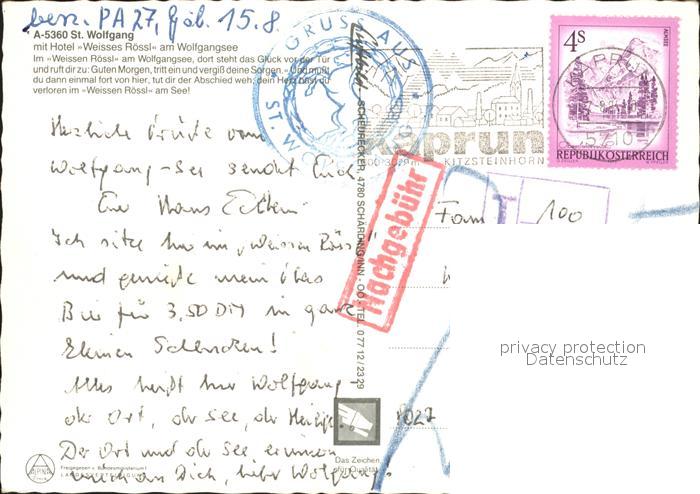 bez. PA27, Geb. 15.8.
A-5360 St. Wolfgang
mit Hotel »Weisses Rössl« am Wolfgangsee
Im »Weisses Rössl« am Wolfgangsee, dort steht das Glück vor der Tür
und ruft dir zu: Guten Morgen, tritt ein und vergiß deine Sorgen. – Und mußt
du dann einmal fort von hier, tut dir der Abschied weh, dein Herz hast du
verloren im »Weissen Rössl« am See!
GRUSS AUS
ST. WOLFGANG
Kaprun
KITZSTEINHORN
4S
ALMSEE
REPUBLIK ÖSTERREICH
Herzliche Grüße vom
Wolfgang-See sendet Euch
Euer Hans
Ich sitze hier im „Weissen Rössl"
und genieße mein
Bier für 3,50 DM in ganz
kleinen Schlucken!
Alles heißt hier Wolfgang
der Ort, der See, der Heilige.
Der Ort und der See erinnern
mich an Dich, lieber Wolfgang!
SCHEURECKER, 4780 SCHÄRDING/INN - OÖ - TEL. 07712/2329
Nachgebühr
T 100
Fam
PA27
privacy protection
Datenschutz
Das Zeichen
für Qualität
ALPINA
Freigegeben v. Bundesministerium f.
LANDESVERTEIDIGUNG